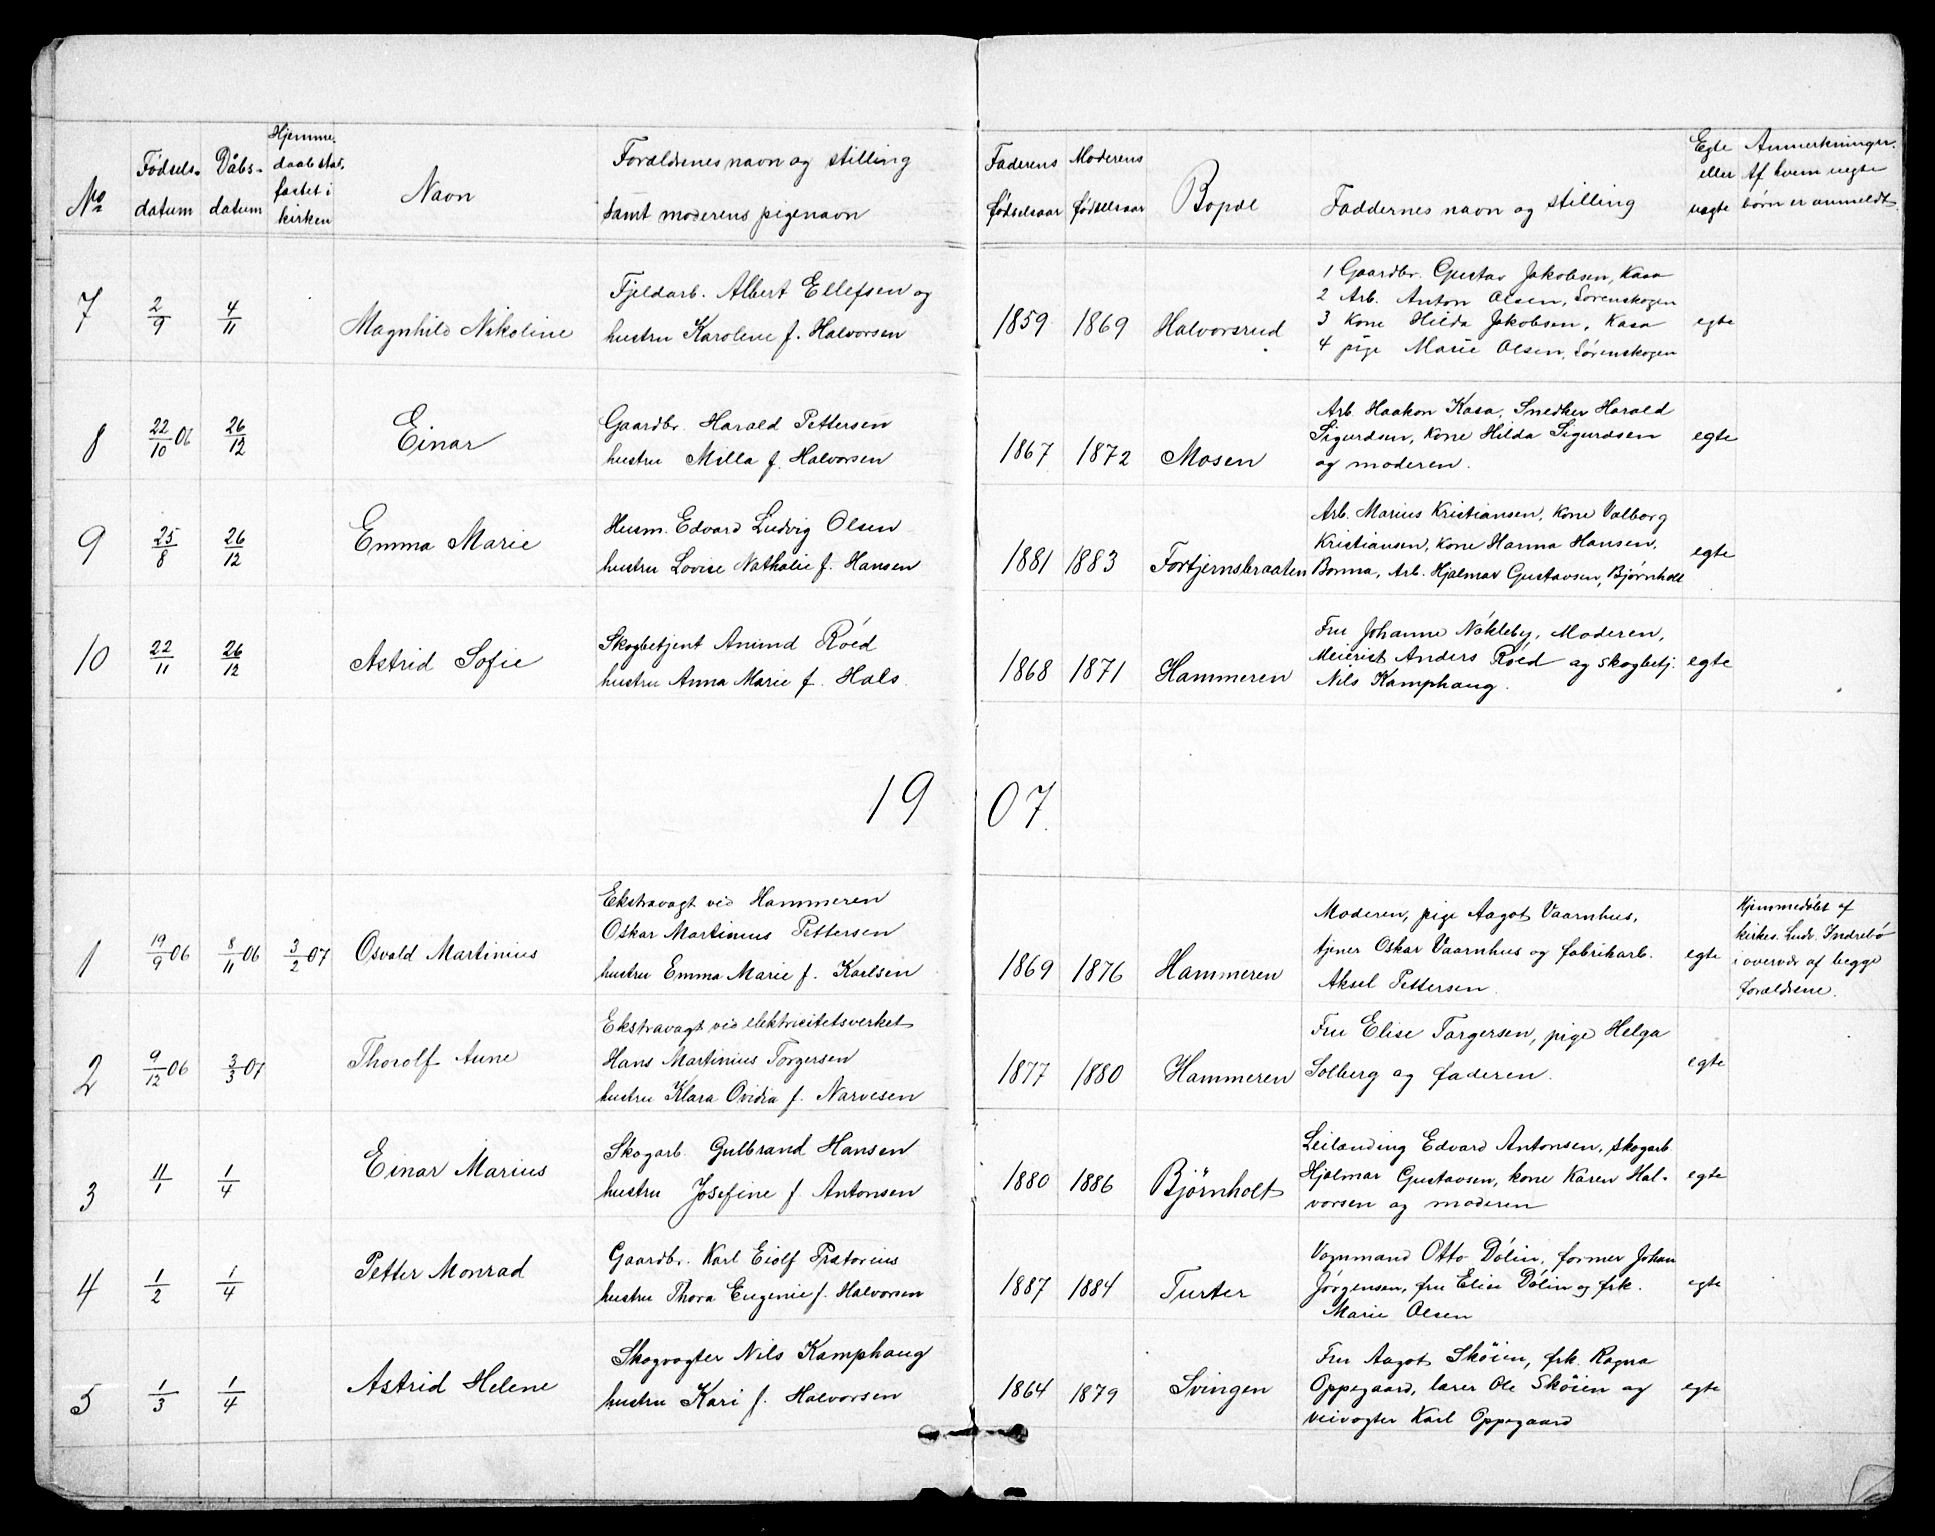 No Fødsels- datum Dåbs- datum Hjemme- daab stad- fæstet i kirken Navn Forældrenes navn og stilling samt moderens pigenavn Faderens fødselsaar Moderens fødselsaar Bopæl Faddernes navn og stilling Egte eller uegte Anmerkninger. Af hvem uegte børn er anmeldt.
7 2/9 4/11 Magnhild Nikoline
Fjeldarb. Albert Ellefsen og
hustru Karoline f. Halvorsen
1859 1869 Halvorsrud
1 Gaardbr. Gustav Jakobsen, Kasa
2 Arb. Anton Olsen, Sørenskogen
3 Kone Hilda Jakobsen, Kasa
4 pige Marie Olsen, Sørenskogen
egte
8 22/10 06 26/12 Einar
Gaardbr. Harald Pettersen
hustru Milla f. Halvorsen
1867 1872 Mosen
Arb. Haakon Kasa, Snedker Harald
Sigurdsen, kone Hilda Sigurdsen
og moderen.
egte
9 25/8 26/12 Emma Marie
Husm. Edvard Ludvig Olsen
hustru Lovise Nathalie f. Hansen
1881 1883 Fortjernsbraaten
Arb. Marius Kristiansen, kone Valborg
Kristiansen, kone Hanna Hansen,
Bonna, Arb. Hjalmar Gustavsen, Bjørnholt
egte
10 22/11 26/12 Astrid Sofie
Skogbetjent Anund Röed
hustru Anna Marie f. Hals.
1868 1871 Hammeren
Fru Johanne Nökleby, Moderen,
Meierist Anders Röed og skogbetj.
Nils Kamphaug.
egte
1907.
1 19/9 06 8/11 06 3/2 07 Osvald Martinius
Ekstravagt ved Hammeren
Oskar Martinius Pettersen
hustru Emma Marie f. Karlsen
1869 1876 Hammeren
Moderen, pige Aagot Vaarnhus,
tjener Oskar Vaarnhus og fabrikarb.
Aksel Pettersen.
egte
Hjemmedøbt af
kirkes. Ludv. Indrebö
i overvær af begge
forældrene.
2 9/12 06 3/3 07 Thorolf Aune
Ekstravagt ved elektricitetsverket
Hans Martinius Torgersen
hustru Klara Ovidia f. Narvesen
1877 1880 Hammeren
Fru Elise Torgersen, pige Helga
Solberg og faderen.
egte
3 11/1 1/4 Einar Marius
Skogarb. Gulbrand Hansen
hustru Josefine f. Antonsen
1880 1886 Bjørnholt
Leilænding Edvard Antonsen, skogarb.
Hjalmar Gustavsen, kone Karen Hal-
vorsen og moderen
egte
4 1/2 1/4 Petter Monrad
Gaardbr. Karl Eiolf Prætorius
hustru Thora Eugenie f. Halvorsen
1887 1884 Turter
Vognmand Otto Dölin, former Johan
Jörgensen, fru Elise Dölin og frk.
Marie Olsen
egte
5 1/3 1/4 Astrid Helene
Skogvogter Nils Kamphaug
hustru Kari f. Halvorsen
1864 1879 Svingen
Fru Aagot Sköien, frk. Ragna
Oppegaard, lærer Ole Sköien og
veivogter Karl Oppegaard
egte